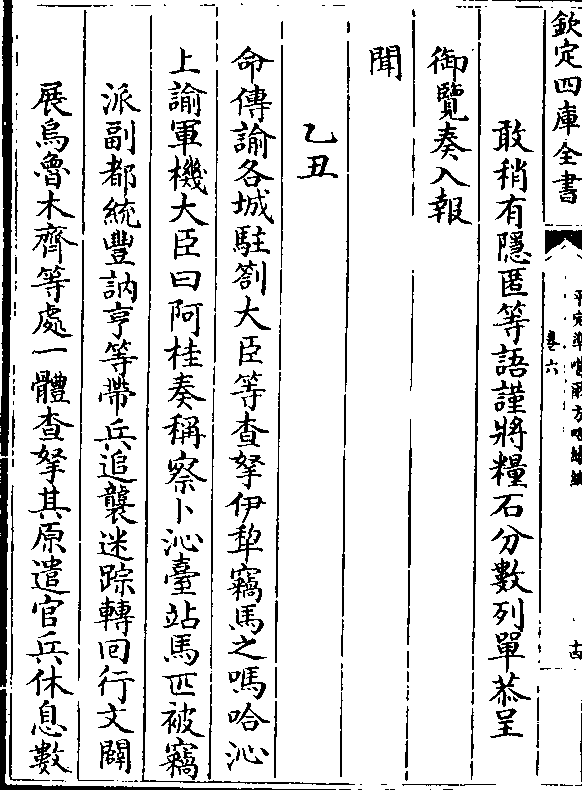 欽定四庫全書
平定準噶爾方略續編
卷六
敢稍有隱匿等語謹將糧石分數列單恭呈
御覽奏入報
聞
乙丑
命傳諭各城駐劄大臣等查拏伊犂竊馬之嗎哈沁
上諭軍機大臣曰阿桂奏稱察卜沁臺站馬匹被竊
派副都統豐訥亨等帶兵追襲迷踪轉回行文闢
展烏魯木齊等處一體查拏其原遣官兵休息數